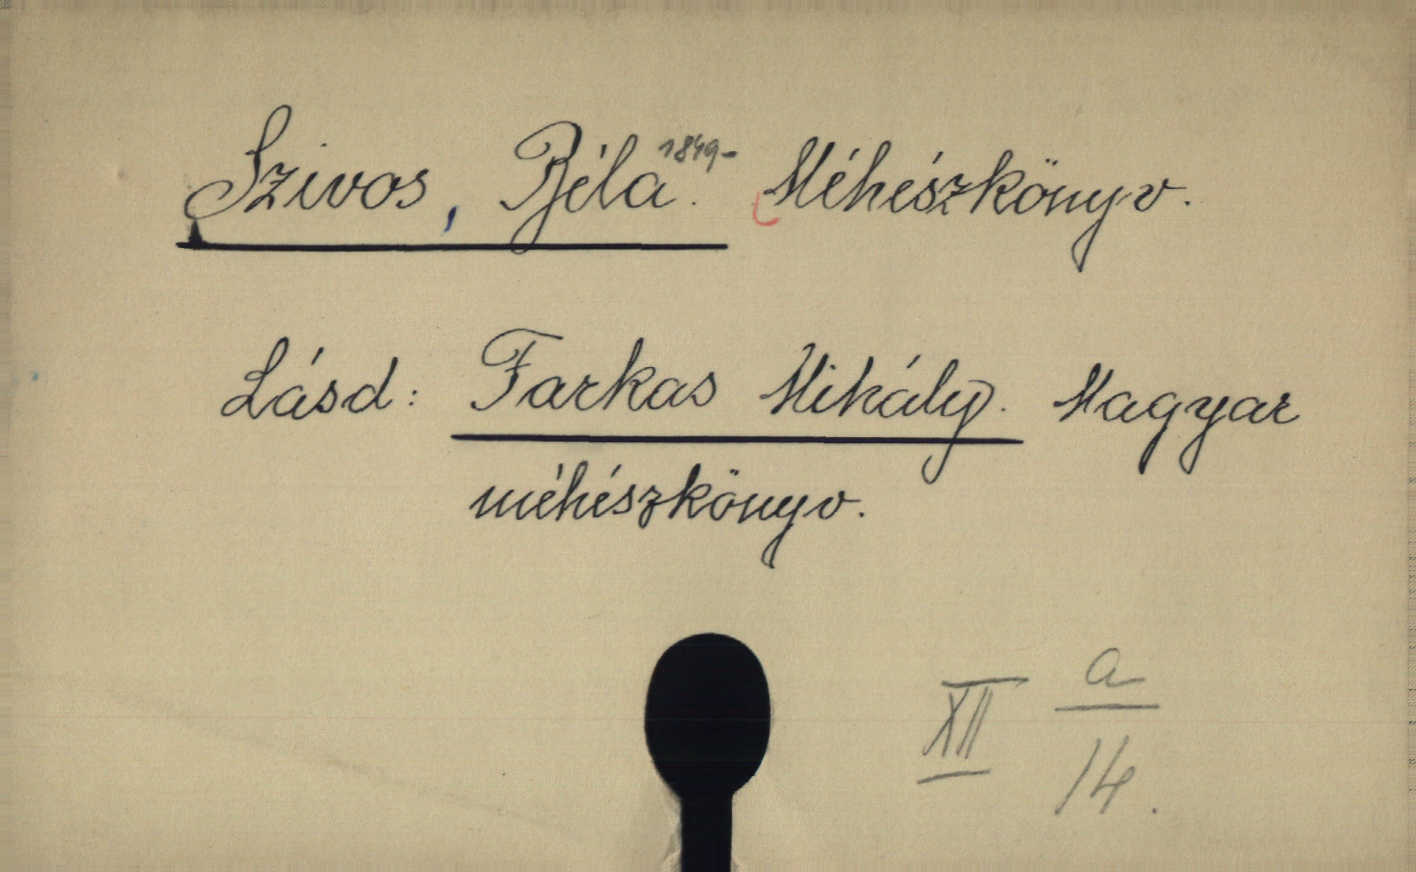 Szivos, Béla 1849-. Méhészkönyv.
Lásd: Farkas Mihály. Magyar
méhészkönyv.
XII a/14.